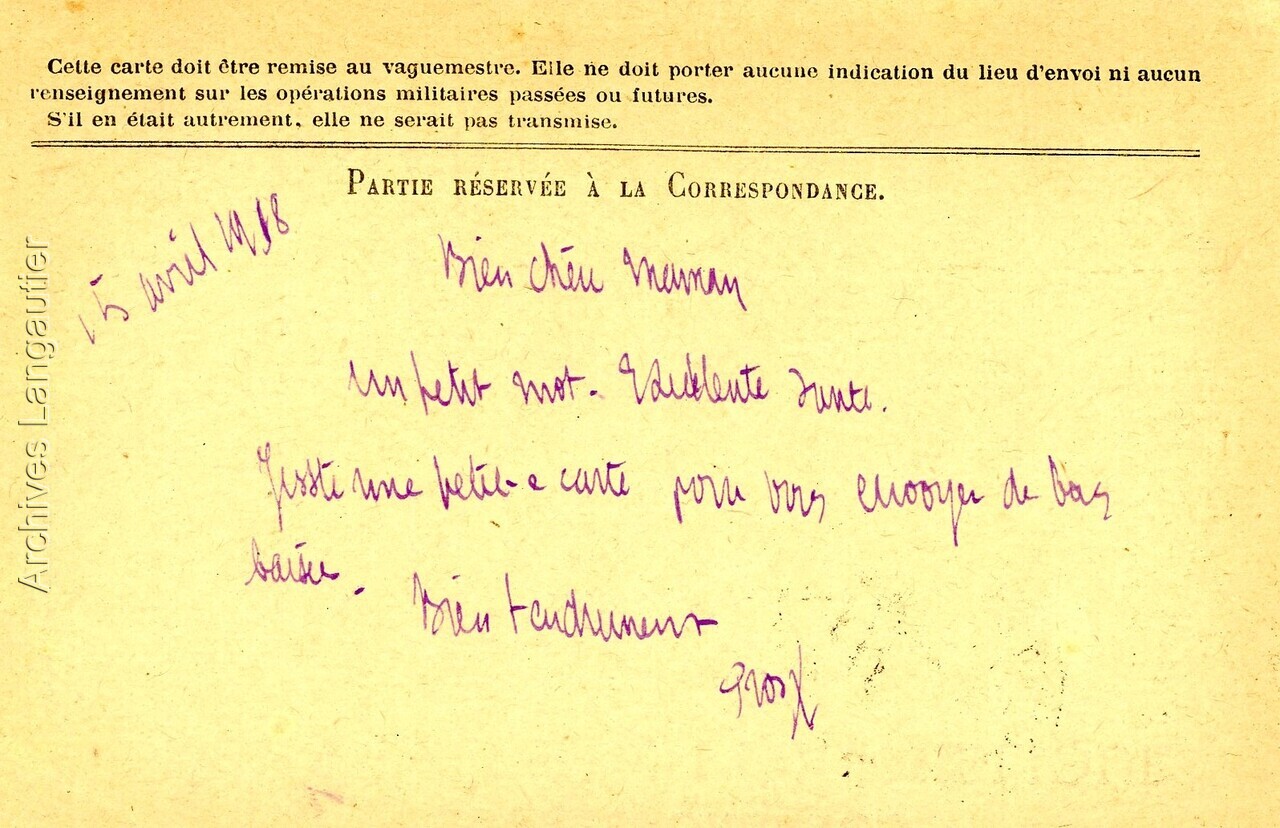 Cette carte doit être remise au vaguemestre. Elle ne doit porter aucune indication du lieu d'envoi ni aucun
renseignement sur les opérations militaires passées ou futures.
S'il en était autrement, elle ne serait pas transmise.
PARTIE RÉSERVÉE À LA CORRESPONDANCE.
15 avril 1918
Bien chère Maman
Un petit mot. Excellente santé.
Juste une petite carte pour vous envoyer de bons
baisers.
Bien tendrement
Archives Langautier